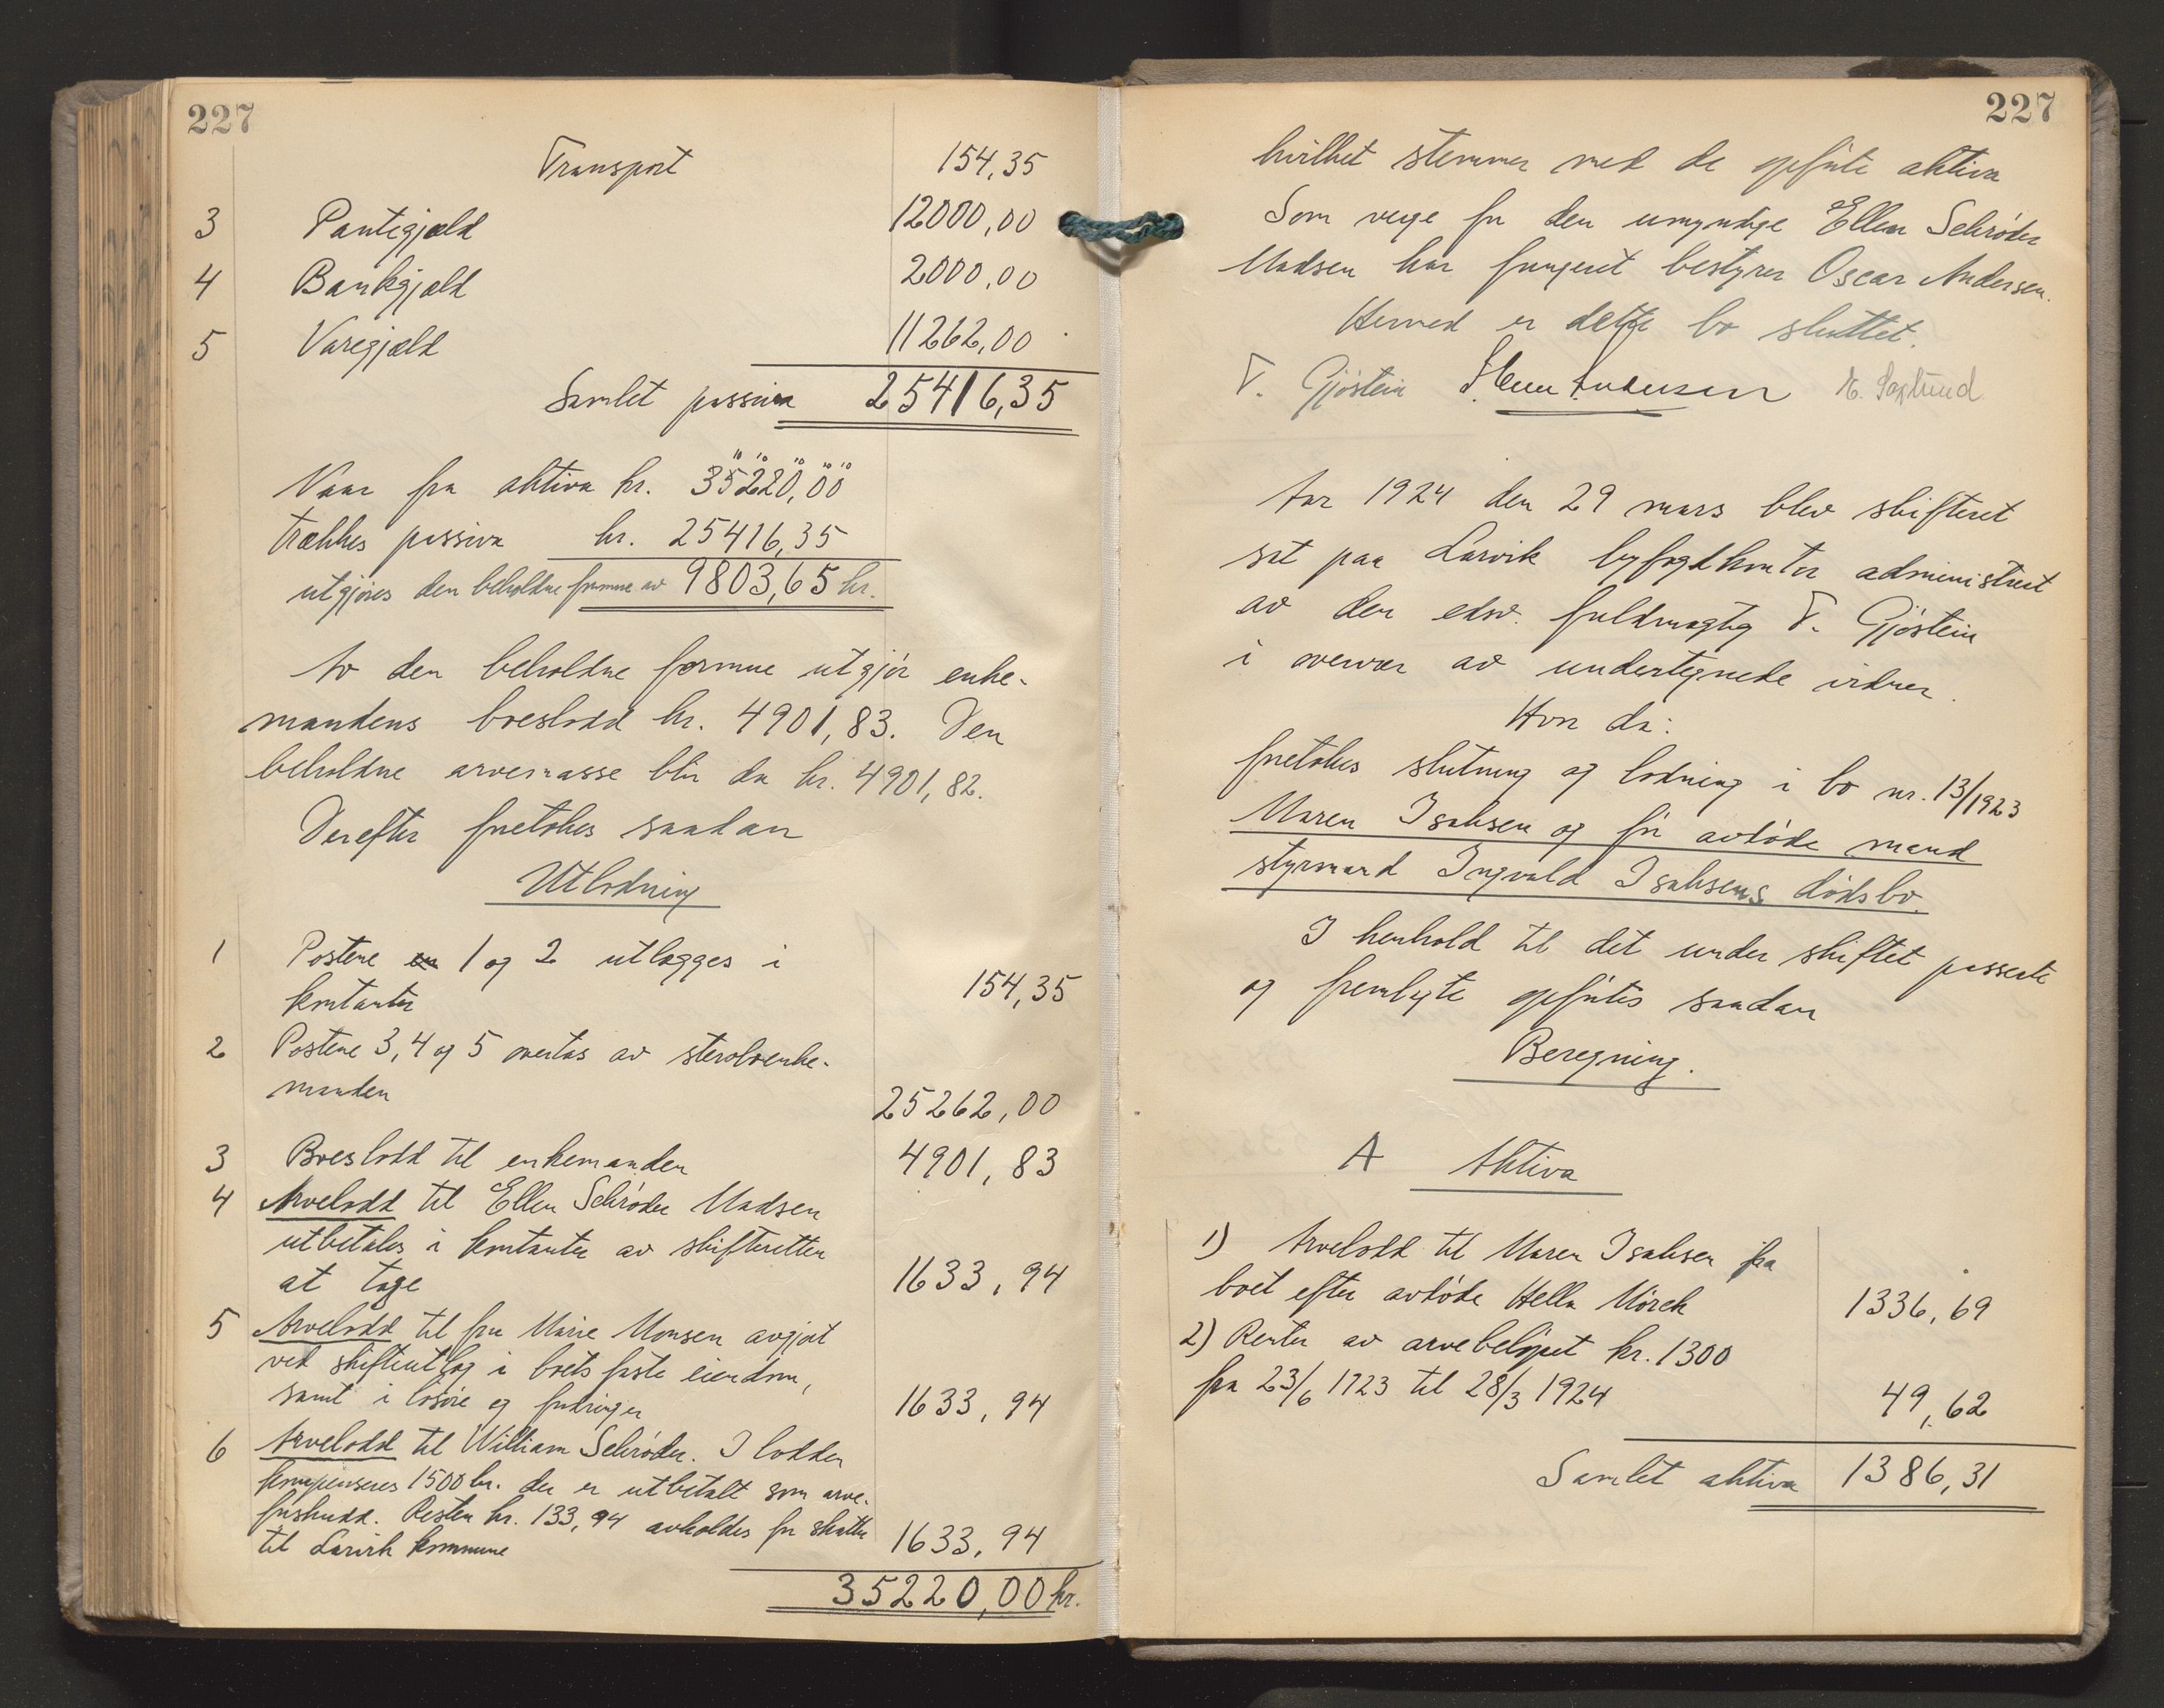 227
Transport 154,35
3 Pantegjæld 12000,00
4 Bankgjæld 2000,00
5 Varegjæld 11262,00
Samlet passiva 25416,35
Naar fra aktiva kr. 35220,00
trækkes passiva kr. 25416,35
utgjøres den beholdne formue av 9803,65 kr.
Av den beholdne formue utgjør enke-
mandens boeslodd kr. 4901,83. Den
beholdne arvemasse blir da kr. 4901,82.
Derefter foretokes saadan
Utlodning
1 Postene 1 og 2 utlægges i
kontanter 154,35
2 Postene 3, 4 og 5 overtas av
manden 25262,00
3 Boeslodd til enkemanden 4901,83
4 Arvelodd til Ellen Schrøder Madsen
utbetales i kontanter av skifteretten
at tage 1633,94
5 Arvelodd til fru Marie Monsen avgjort
ved skifteutlæg i boets faste eiendom,
samt i løsøre og fordringer 1633,94
6 Arvelodd til William Schrøder. I lodden
kompenseres 1500 kr. der er utbetalt som arve-
forskudd. Resten kr. 133,94 avholdes for skatter
til Larvik kommune 1633,94
35220,00 kr.
227
hvilket stemmer med de opførte aktiva
Som verge for den umyndige Ellen Schrøder
Madsen har fungeret bestyrer Oscar Andersen.
Hermed er dette bo sluttet.
T. Gjøstein Andersen
Aar 1924 den 29 mars blev skifteret
sat paa Larvik byfogdkontor administreret
av den edsv. fuldmægtig T. Gjøstein
i overvær av undertegnede vidner.
Hvor da:
foretokes slutning og lodning i bo nr. 13/1923
Maren Isaksen og før avdøde mand
styrmand Ingvald Isaksens dødsbo.
I henhold til det under skiftet passerte
og fremlagte opførtes saadan
Beregning.
A Aktiva
1) Arvelodd til Maren Isaksen fra
boet efter avdøde Hella Mørch 1336,69
2) Renter av arvebeløpet kr. 1300
fra 23/6 1923 til 28/3 1924 49,62
Samlet aktiva 1386,31